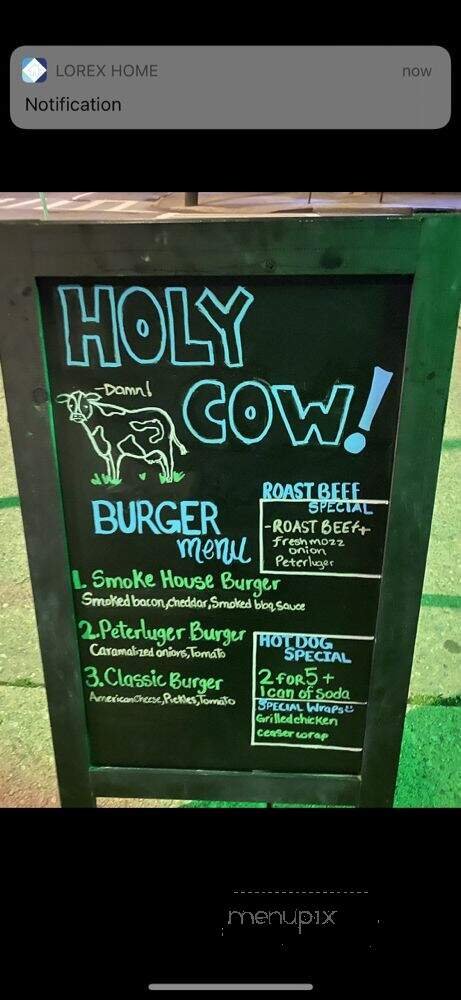 LOREX HOME now
Notification
HOLY
COW!
-Damn!
BURGER
menu
1. Smoke House Burger
Smoked bacon, cheddar, Smoked bbq, Sauce
2. Peterluger Burger
Caramalized onions, Tomato
3. Classic Burger
American Cheese, Pickles, Tomato
ROAST BEEF
SPECIAL
-ROAST BEEF+
fresh mozz
onion
Peterluger
HOT DOG
SPECIAL
2 FOR 5 +
1 can of soda
SPECIAL Wraps
Grilled chicken
ceaser wrap
menupix